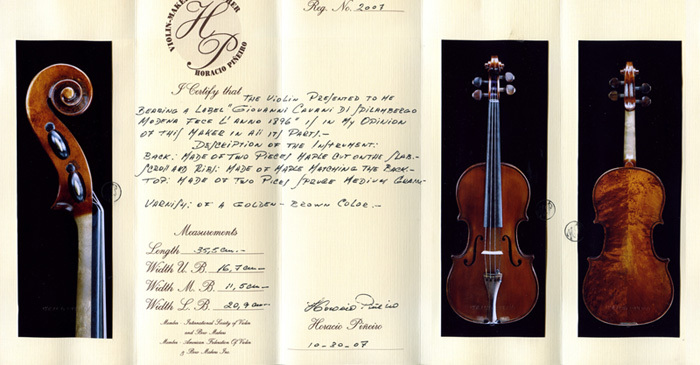 VIOLIN-MAKER
HP
HORACIO PIÑEIRO
Reg. No. 2007
I Certify that THE VIOLIN PRESENTED TO ME
BEARING A LABEL "GIOVANNI CAVANI DI SPILAMBERGO
MODENA FECE L'ANNO 1896" IS IN MY OPINION
OF THIS MAKER IN All ITS PARTS.-
DESCRIPTION OF THE INSTRUMENT:
BACK: MADE OF TWO PIECES MAPLE CUT ON THE SLAB-
SCROP AND RIBS: MADE OF MAPLE MATCHING THE BACK-
TOP: MADE OF TWO PICES SPRUSE MEDIUM GRAIN-
VARNISH: OF A GOLDEN-BROWN COLOR.-
Measurements
Length 35,5 cm.-
Width U. B. 16,7 cm.-
Width M. B. 11,5 cm.-
Width L. B. 20,9 cm.-
Member - International Society of Violin
and Bow Makers
Member - American Federation Of Violin
& Bow Makers Inc.
Horacio Piñeiro
Horacio Piñeiro
10-30-07